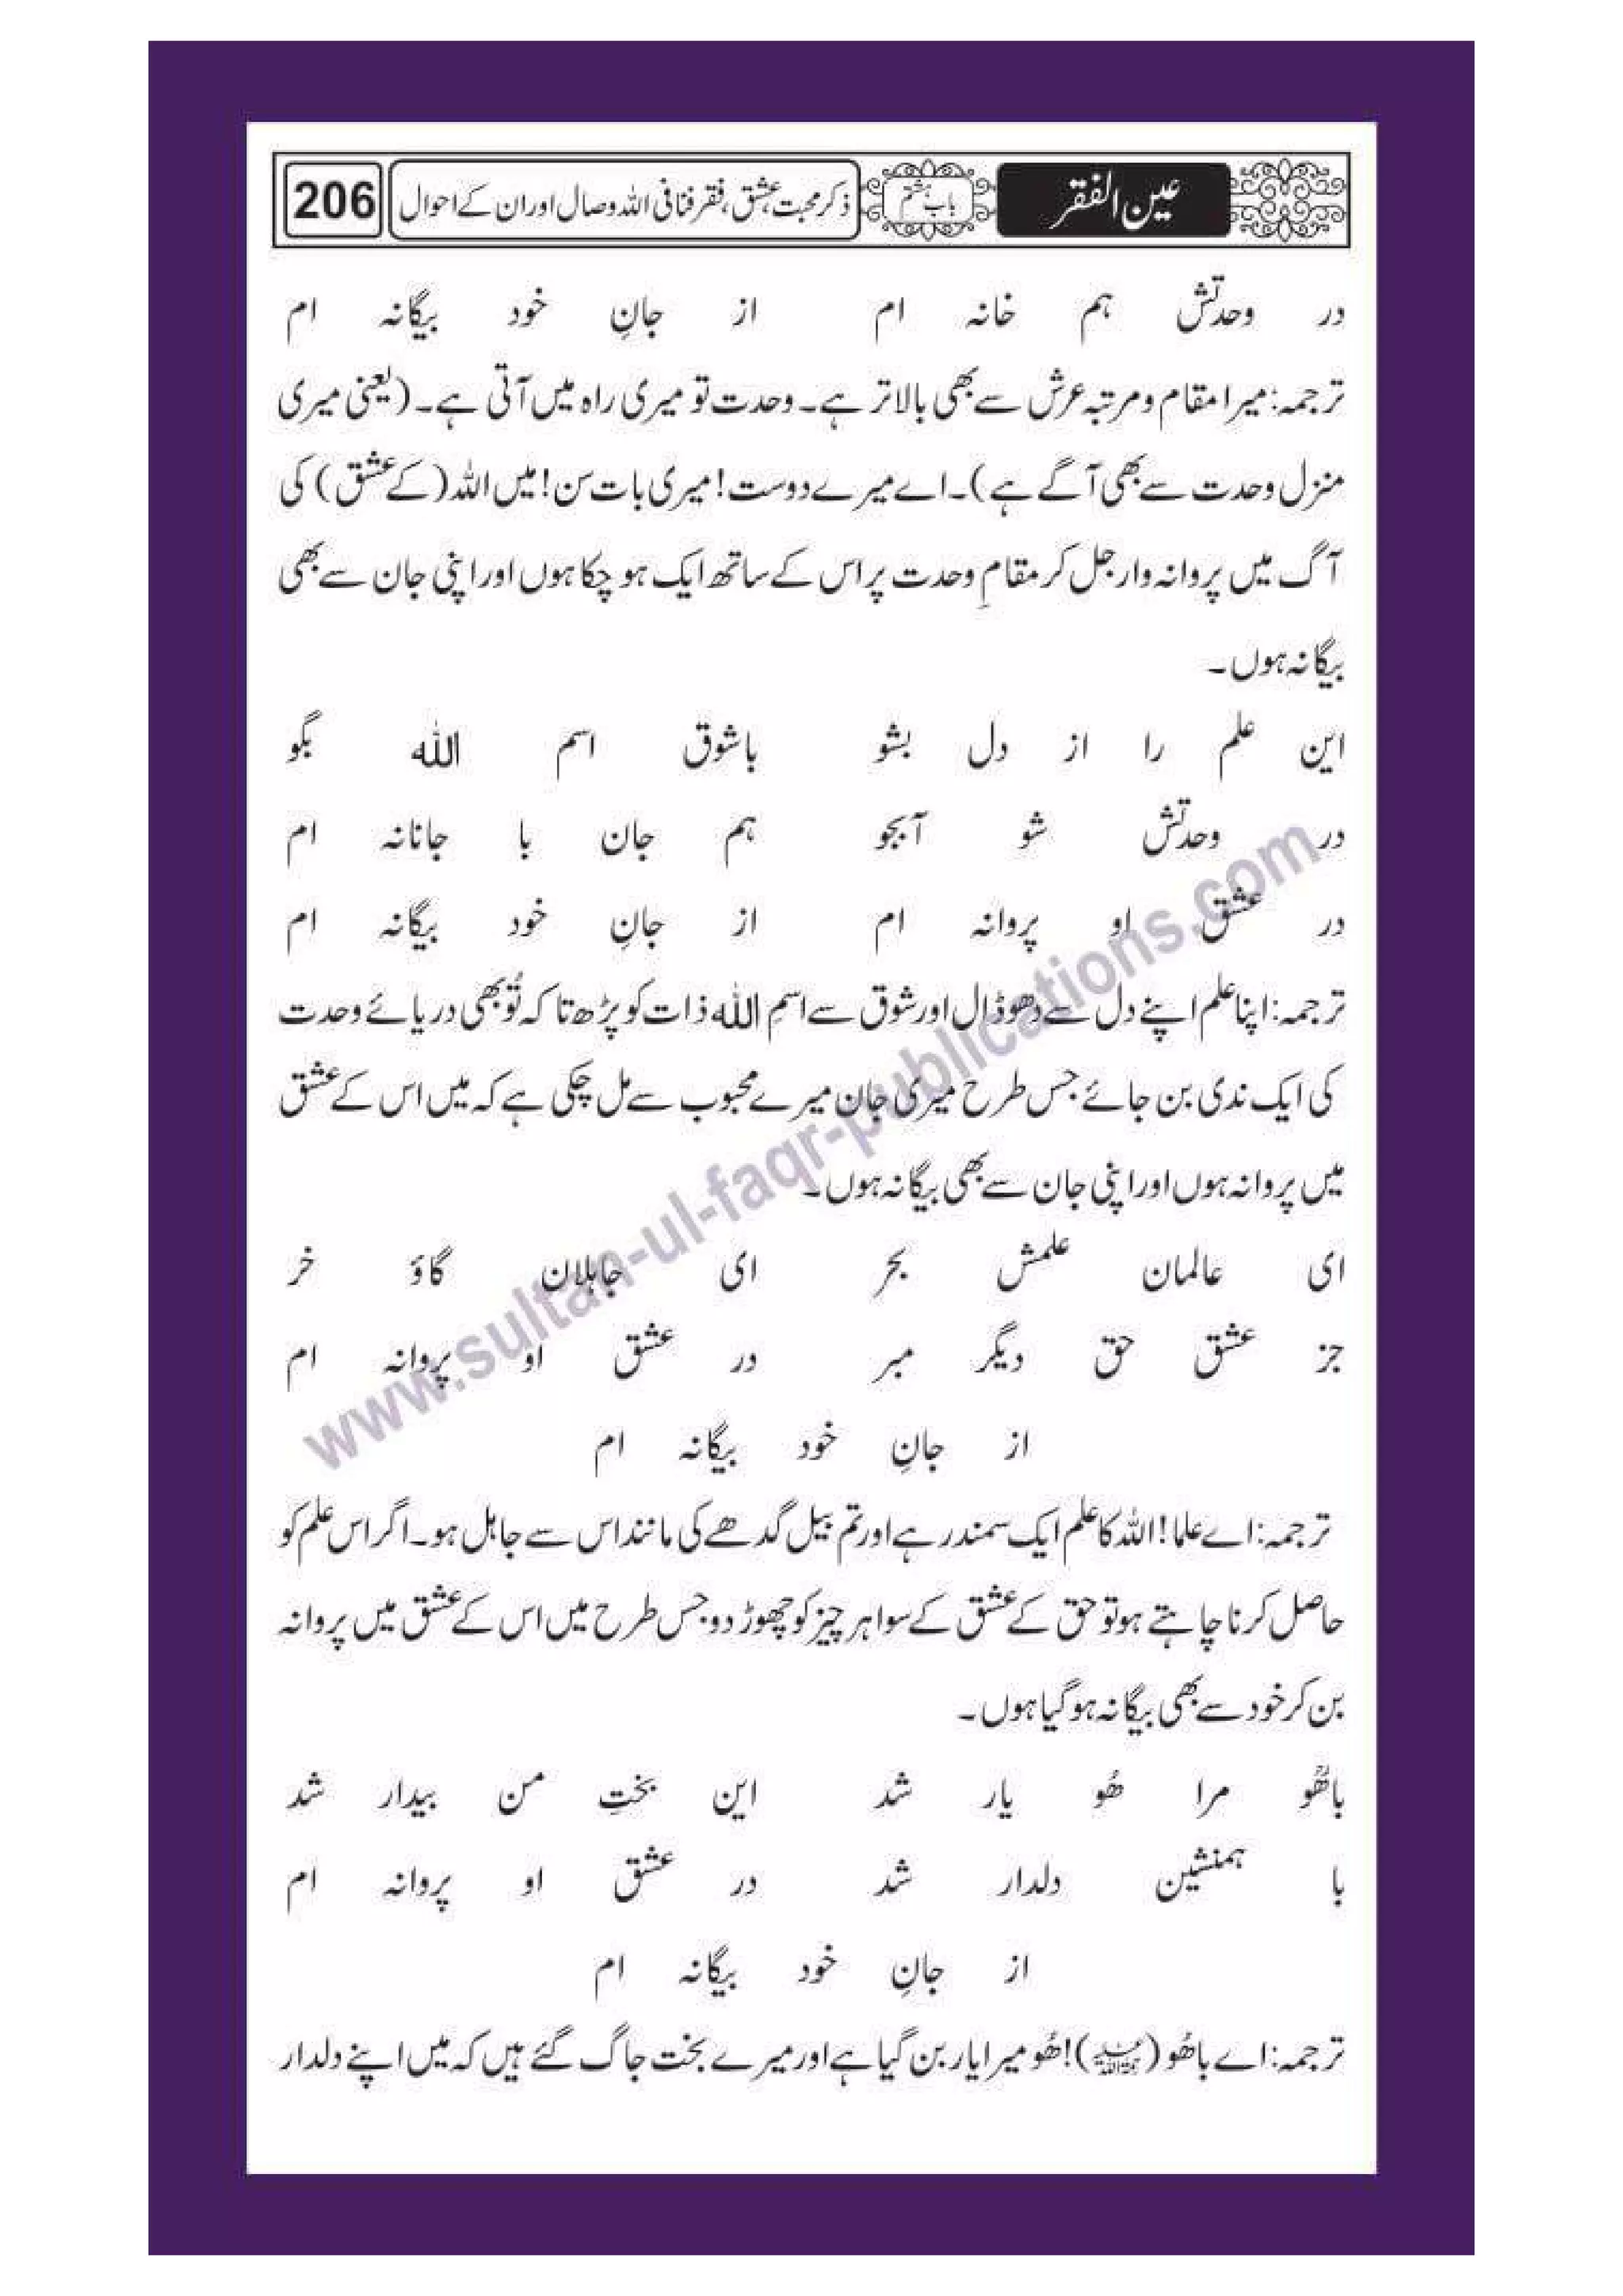 عین الفقر باب ہشتم ذکر محبت، عشق، فقر فنا فی اللہ وصال اور ان کے احوال 206
در وحدتش ہم خانہ ام از جانِ خود بیگانہ ام
ترجمہ: میرا مقام و مرتبہ عرش سے بھی بالاتر ہے۔ وحدت تو میری راہ میں آتی ہے۔ (یعنی میری
منزل وحدت سے بھی آگے ہے)۔ اے میرے دوست! میری بات سن! میں اللہ (کے عشق) کی
آگ میں پروانہ وار جل کر مقامِ وحدت پر اس کے ساتھ ایک ہو چکا ہوں اور اپنی جان سے بھی
بیگانہ ہوں۔
این علم را از دل بشو باشوق اسم اللہ بگو
در وحدتش شو آبجو ہم جان با جانانہ ام
در عشق او پروانہ ام از جانِ خود بیگانہ ام
ترجمہ: اپنا علم اپنے دل سے دھو ڈال اور شوق سے اسمِ اللہ ذات کو پڑھ تا کہ تُو بھی دریائے وحدت
کی ایک ندی بن جائے جس طرح میری جان میرے محبوب سے مل چکی ہے کہ میں اس کے عشق
میں پروانہ ہوں اور اپنی جان سے بھی بیگانہ ہوں۔
ای عالمان علمش بحر ای جاہلان گاؤ خر
جز عشق حق دیگر مبر در عشق او پروانہ ام
از جانِ خود بیگانہ ام
ترجمہ: اے علما! اللہ کا علم ایک سمندر ہے اور تم بیل گدھے کی مانند اس سے جاہل ہو۔ اگر اس علم کو
حاصل کرنا چاہتے ہو تو حق کے عشق کے سوا ہر چیز کو چھوڑ دو جس طرح میں اس کے عشق میں پروانہ
بن کر خود سے بھی بیگانہ ہو گیا ہوں۔
باھُوؒ مرا ھُو یار شد این بختِ من بیدار شد
با ہمنشین دلدار شد در عشق او پروانہ ام
از جانِ خود بیگانہ ام
ترجمہ: اے باھُو (رحمۃ اللہ علیہ)! ھُو میرا یار بن گیا ہے اور میرے بخت جاگ گئے ہیں کہ میں اپنے دلدار
www.sultan-ul-faqr-publications.com